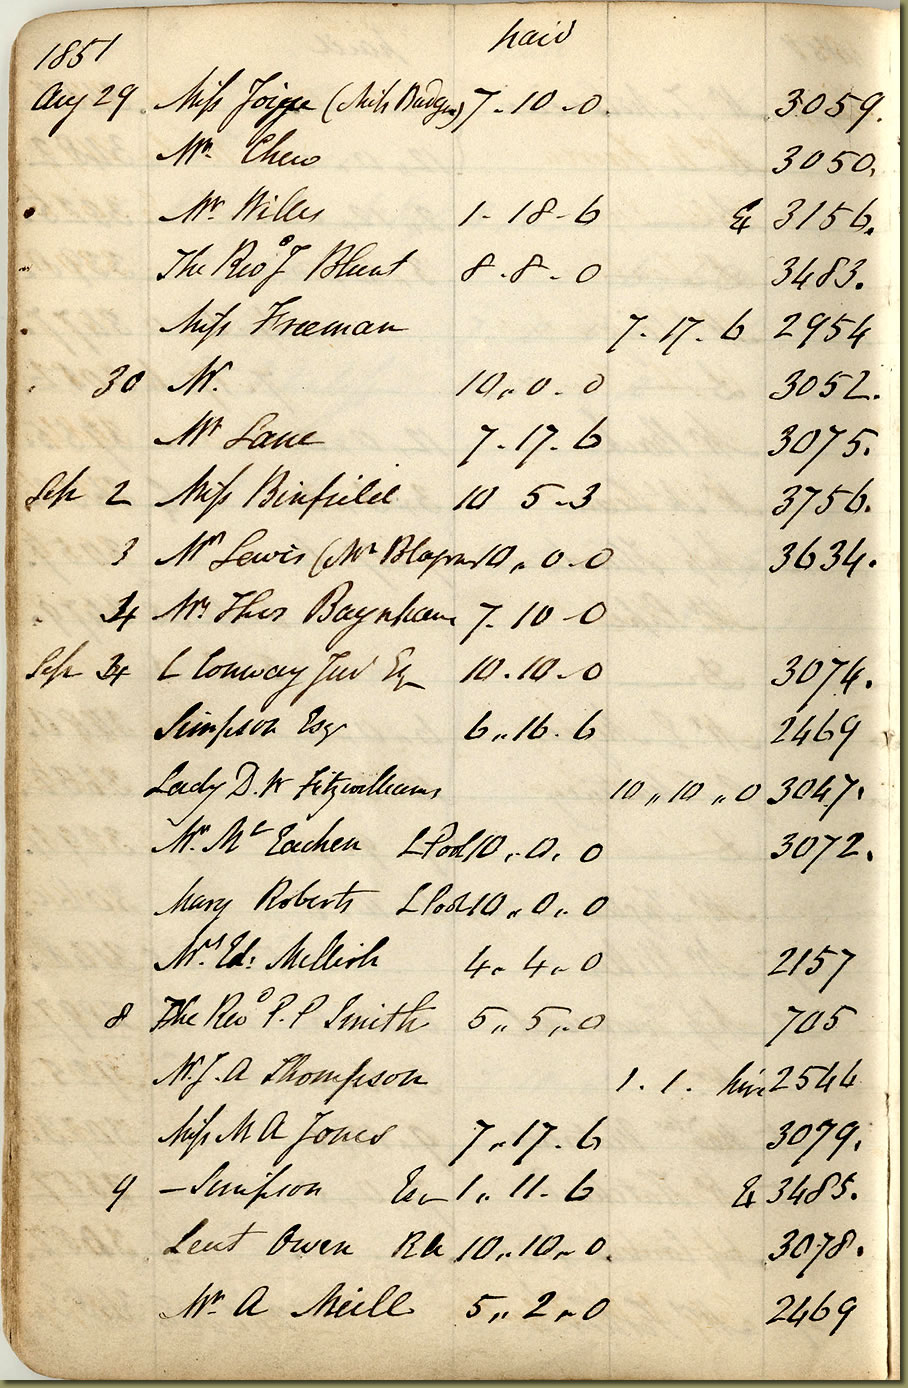 paid
1851
Aug 29 Miss Joigne (Miss Badger) 7-10-0 3059.
Mr. Chew 3050.
Mr. Willes 1-18-6 & 3156.
The Revd J Blunt 8-8-0 3483.
Miss Freeman 7-17-6 2954
30 Mr. 10,,0-0 3052.
Mr Lane 7-17-6 3075.
Sep 2 Miss Binfield 10 5-3 3756.
3 Mr Lewis (Mr Blagrove 10,,0-0 3634.
4 Mr Thos Baynham 7-10-0
Sep 4 C Conway Jun Esq 10-10-0 3074.
Simpson Esq 6,,16-6 2469
Lady D. W Fitzwilliams 10,,10,,0 3047.
Mr. Mc Eachen LPool 10,,0,,0 3072.
Mary Roberts LPool 10,,0,,0
Mrs Ed: Mellish 4,,4,,0 2157
8 The Revd P. P Smith 5,,5,,0 705
Mr. J. A Thompson 1. 1. hire 2544
Miss M A Jones 7,,17-6 3079.
9 - Simpson Esq 1,,11-6 & 3485.
Leut Owen RN 10,,10,,0. 3078.
Mr A Neill 5,,2,,0 2469